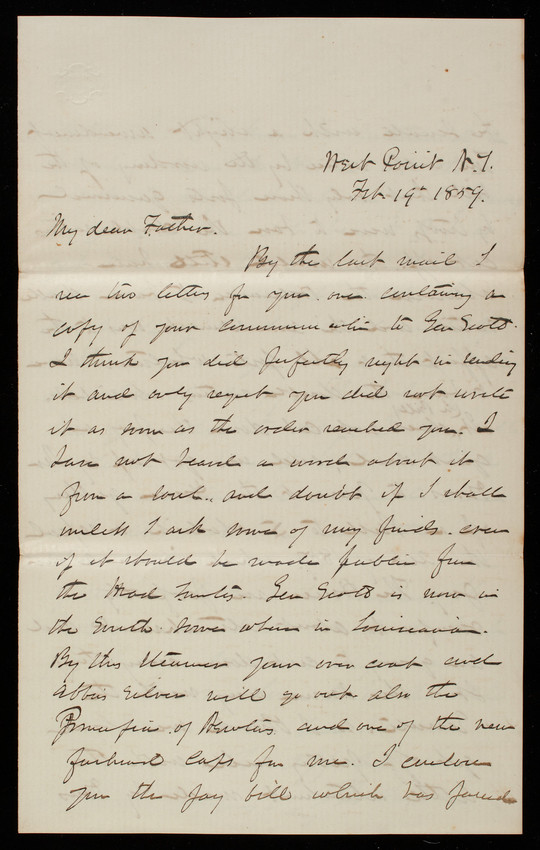 West Point N.Y.
Feb. 19th 1859.
My dear Father.
By the last mail I
rec two letters from you one containing a
copy of your communication to Gen Scott.
I think you did perfectly right in sending
it and only regret you did not write
it as soon as the order reached you. I
have not heard a word about it
from a soul, and doubt if I shall
unless I ask some of my friends. even
if it should be made public from
the Head Qurtrs. Gen Scott is now in
the South some where in Louisiana.
By this Steamer your over coat and
Abbis silver will go out also the
of and one of the new
caps for me. I enclose
you the bill which has